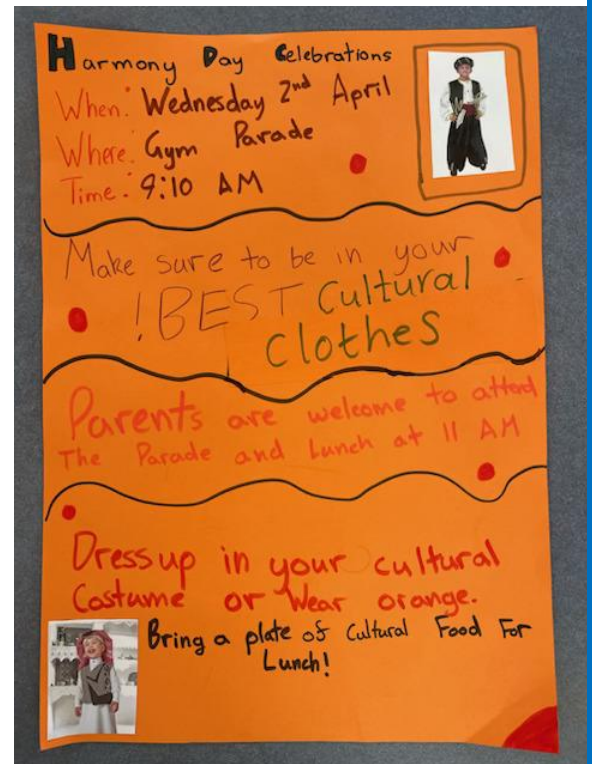 Harmony Day Celebrations
When: Wednesday 2nd April
Where: Gym Parade
Time: 9:10 AM
Make sure to be in your
!BEST Cultural
Clothes
Parents are welcome to attend
The Parade and Lunch at 11 AM
Dress up in your cultural
Costume or Wear orange.
Bring a plate of Cultural Food For
Lunch!